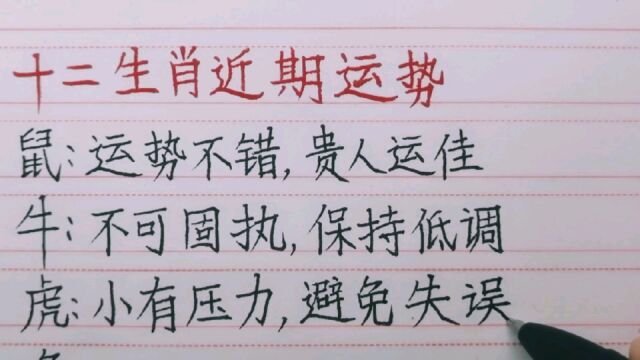 十二生肖近期运势
鼠:运势不错,贵人运佳
牛:不可固执,保持低调
虎:小有压力,避免失误